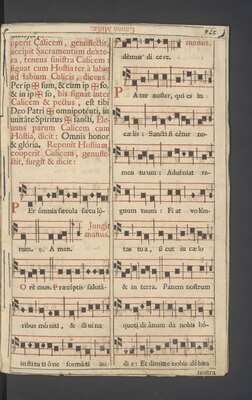 Canon Missæ.
operit Calicem, genuflectit,
accipit Sacramentum dexte-
ra, tenens sinistra Calicem:
signat cum Hostia ter à labio
ad labium Calicis, dicens:
Per ip ✠ sum, & cum ip ✠ so,
& in ip ✠ so, bis signat inter
Calicem & pectus, est tibi
Deo Patri ✠ omnipotenti, in
unitáte Spiritus ✠ sancti, Ele-
vans parum Calicem cum
Hostia, dicit: Omnis honor
& glória. Reponit Hostiam,
cooperit Calicem, genufle-
ctit, surgit & dicit:
Per ómnia sæcula sæculó-
Jungit
manus.
rum. ℟. Amen.
O ré mus. Præcéptis salutá-
ribus móniti, & divína
institutióne formáti au-
manus.
démus dicere.
P Ater noster, qui es in
cælis: Sanctificétur no-
men tuum: Advéniat re-
gnum tuum: Fiat volún-
tas tua, sicut in cælo
& in terra. Panem nostrum
quotidiánum da nobis hó-
die: Et dimitte nobis débita
nostra